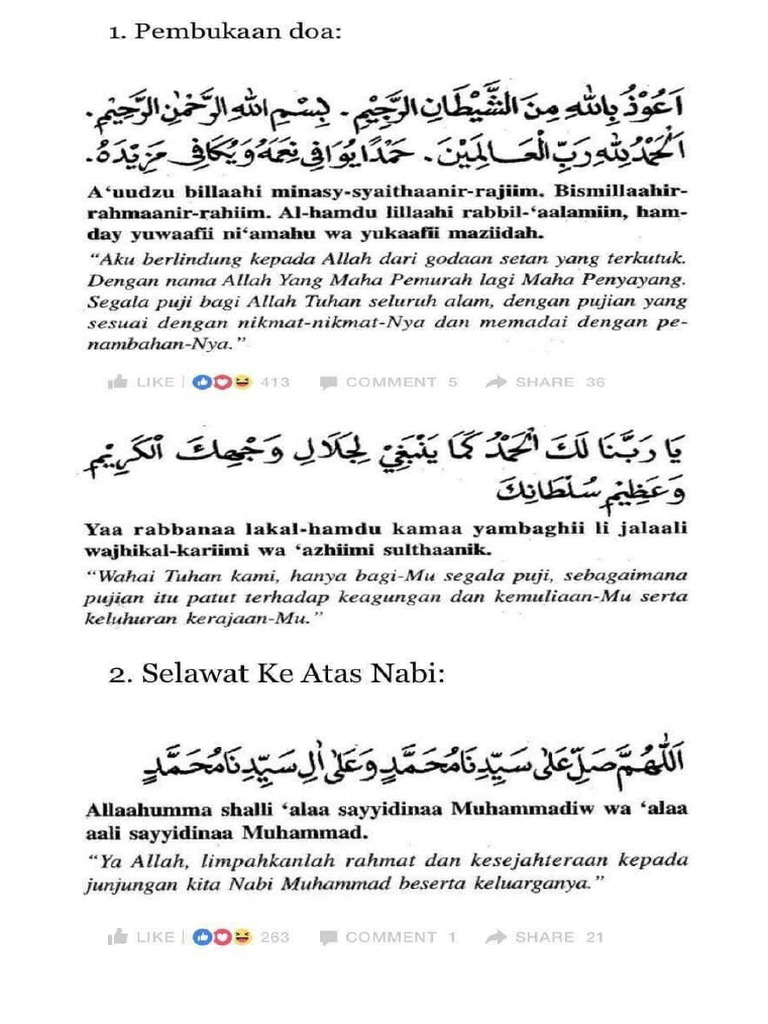 1. Pembukaan doa:
اَعُوْذُ بِاللهِ مِنَ الشَّيْطَانِ الرَّجِيْمِ. بِسْمِ اللهِ الرَّحْمٰنِ الرَّحِيْمِ.
اَلْحَمْدُ لِلّٰهِ رَبِّ الْعَـالَمِيْنَ. حَمْدًا يُوَافِي نِعَمَهُ وَيُكَافِي مَزِيْدَهُ.
A‘uudzu billaahi minasy-syaithaanir-rajiim. Bismillaahir-
rahmaanir-rahiim. Al-hamdu lillaahi rabbil-‘aalamiin, ham-
day yuwaafii ni‘amahu wa yukaafii maziidah.
“Aku berlindung kepada Allah dari godaan setan yang terkutuk.
Dengan nama Allah Yang Maha Pemurah lagi Maha Penyayang.
Segala puji bagi Allah Tuhan seluruh alam, dengan pujian yang
sesuai dengan nikmat-nikmat-Nya dan memadai dengan pe-
nambahan-Nya.”
LIKE | 413 COMMENT 5 SHARE 36
يَا رَبَّنَا لَكَ الْحَمْدُ كَمَا يَنْبَغِيْ لِجَلَالِ وَجْهِكَ الْكَرِيْمِ
وَعَظِيْمِ سُلْطَانِكَ
Yaa rabbanaa lakal-hamdu kamaa yambaghii li jalaali
wajhikal-kariimi wa ‘azhiimi sulthaanik.
“Wahai Tuhan kami, hanya bagi-Mu segala puji, sebagaimana
pujian itu patut terhadap keagungan dan kemuliaan-Mu serta
keluhuran kerajaan-Mu.”
2. Selawat Ke Atas Nabi:
اَللّٰهُمَّ صَلِّ عَلٰى سَيِّدِنَا مُحَمَّدٍ وَعَلٰى اٰلِ سَيِّدِنَا مُحَمَّدٍ
Allaahumma shalli ‘alaa sayyidinaa Muhammadiw wa ‘alaa
aali sayyidinaa Muhammad.
“Ya Allah, limpahkanlah rahmat dan kesejahteraan kepada
junjungan kita Nabi Muhammad beserta keluarganya.”
LIKE | 263 COMMENT 1 SHARE 21